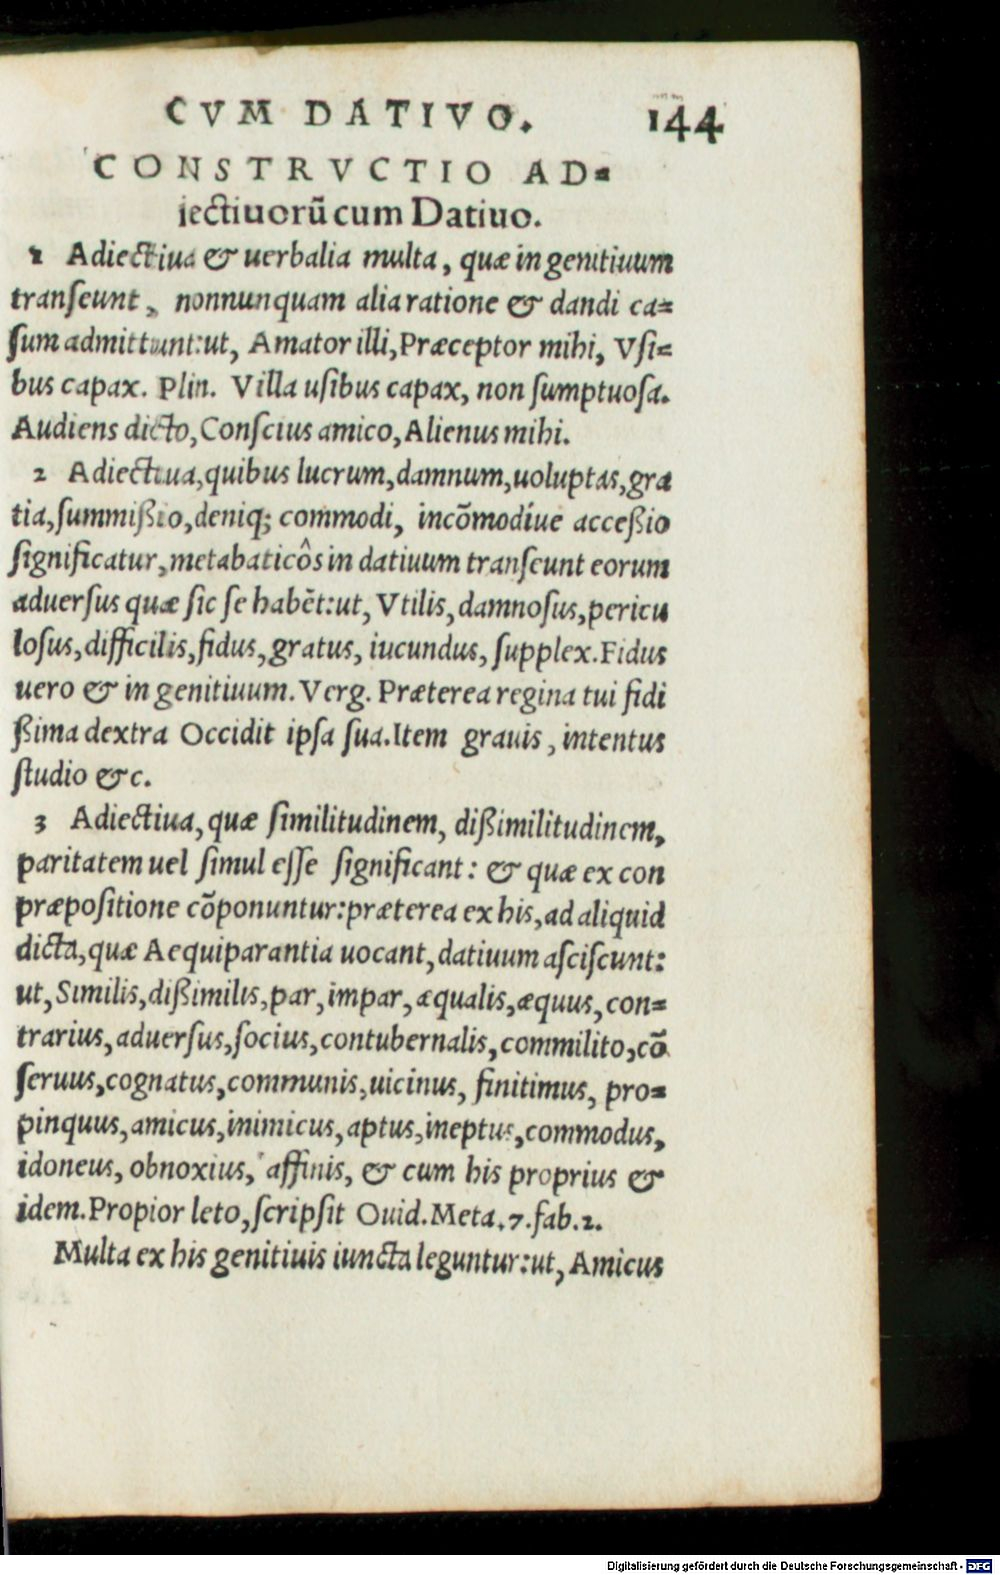 CVM DATIVO. 144
CONSTRVCTIO AD=
iectiuorũ cum Datiuo.
1 Adiectiua & uerbalia multa, quæ in genitiuum
tranſeunt, nonnunquam alia ratione & dandi ca=
ſum admittunt: ut, Amator illi, Præceptor mihi, Vſi=
bus capax. Plin. Villa uſibus capax, non ſumptuoſa.
Audiens dicto, Conſcius amico, Alienus mihi.
2 Adiectiua, quibus lucrum, damnum, uoluptas, gra
tia, ſummißio, deniq; commodi, incõmodiue acceßio
ſignificatur, metabaticôs in datiuum tranſeunt eorum
aduerſus quæ ſic ſe habẽt: ut, Vtilis, damnoſus, pericu
loſus, difficilis, fidus, gratus, iucundus, ſupplex. Fidus
uero & in genitiuum. Verg. Præterea regina tui fidi
ßima dextra Occidit ipſa ſua. Item grauis, intentus
ſtudio &c.
3 Adiectiua, quæ ſimilitudinem, dißimilitudinem,
paritatem uel ſimul eſſe ſignificant: & quæ ex con
præpoſitione cõponuntur: præterea ex his, ad aliquid
dicta, quæ Aequiparantia uocant, datiuum aſciſcunt:
ut, Similis, dißimilis, par, impar, æqualis, æquus, con=
trarius, aduerſus, ſocius, contubernalis, commilito, cõ
ſeruus, cognatus, communis, uicinus, finitimus, pro=
pinquus, amicus, inimicus, aptus, ineptus, commodus,
idoneus, obnoxius, affinis, & cum his proprius &
idem. Propior leto, ſcripſit Ouid. Meta. 7. fab. 2.
Multa ex his genitiuis iuncta leguntur: ut, Amicus
Digitalisierung gefördert durch die Deutsche Forschungsgemeinschaft - DFG